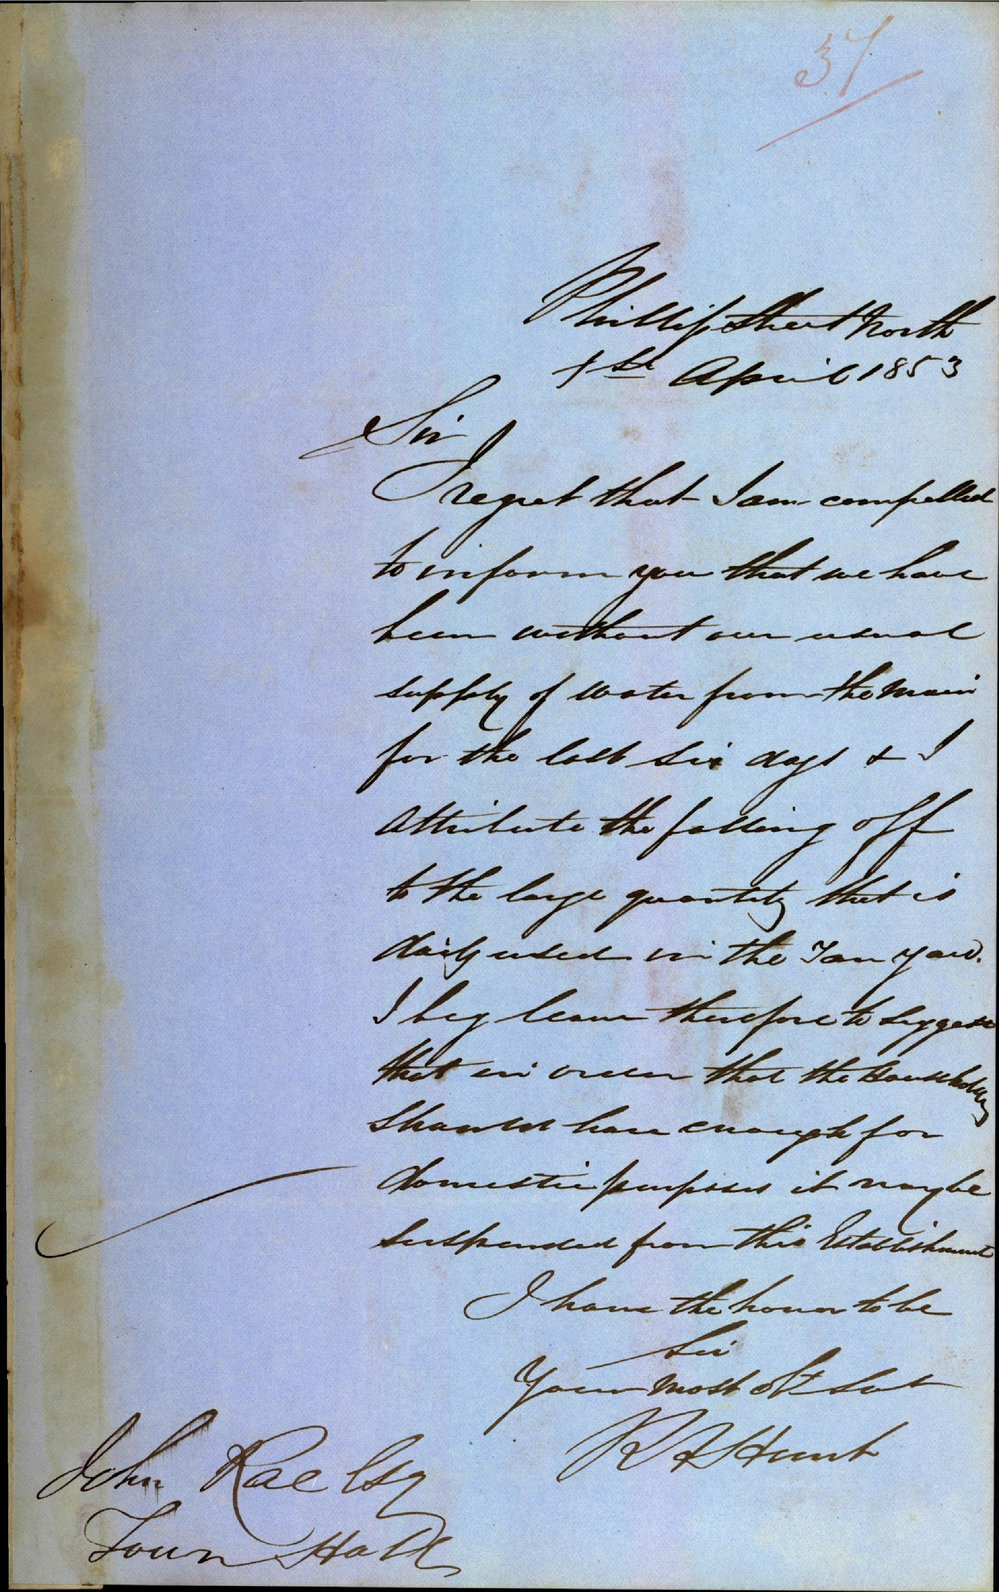 37
Phillip Street North
1st April 1853
Sir
I regret that I am compelled
to inform you that we have
been without our usual
supply of water from the Main
for the last six days & I
attribute the falling off
to the large quantity that is
daily used in the Tan yard.
I beg leave therefore to suggest
that in order that the Households
should have enough for
domestic purposes it may be
suspended from this Establishment
I have the honor to be
Sir
Your most obt Svt
R A Hunt
John Rae Esq
Town Hall